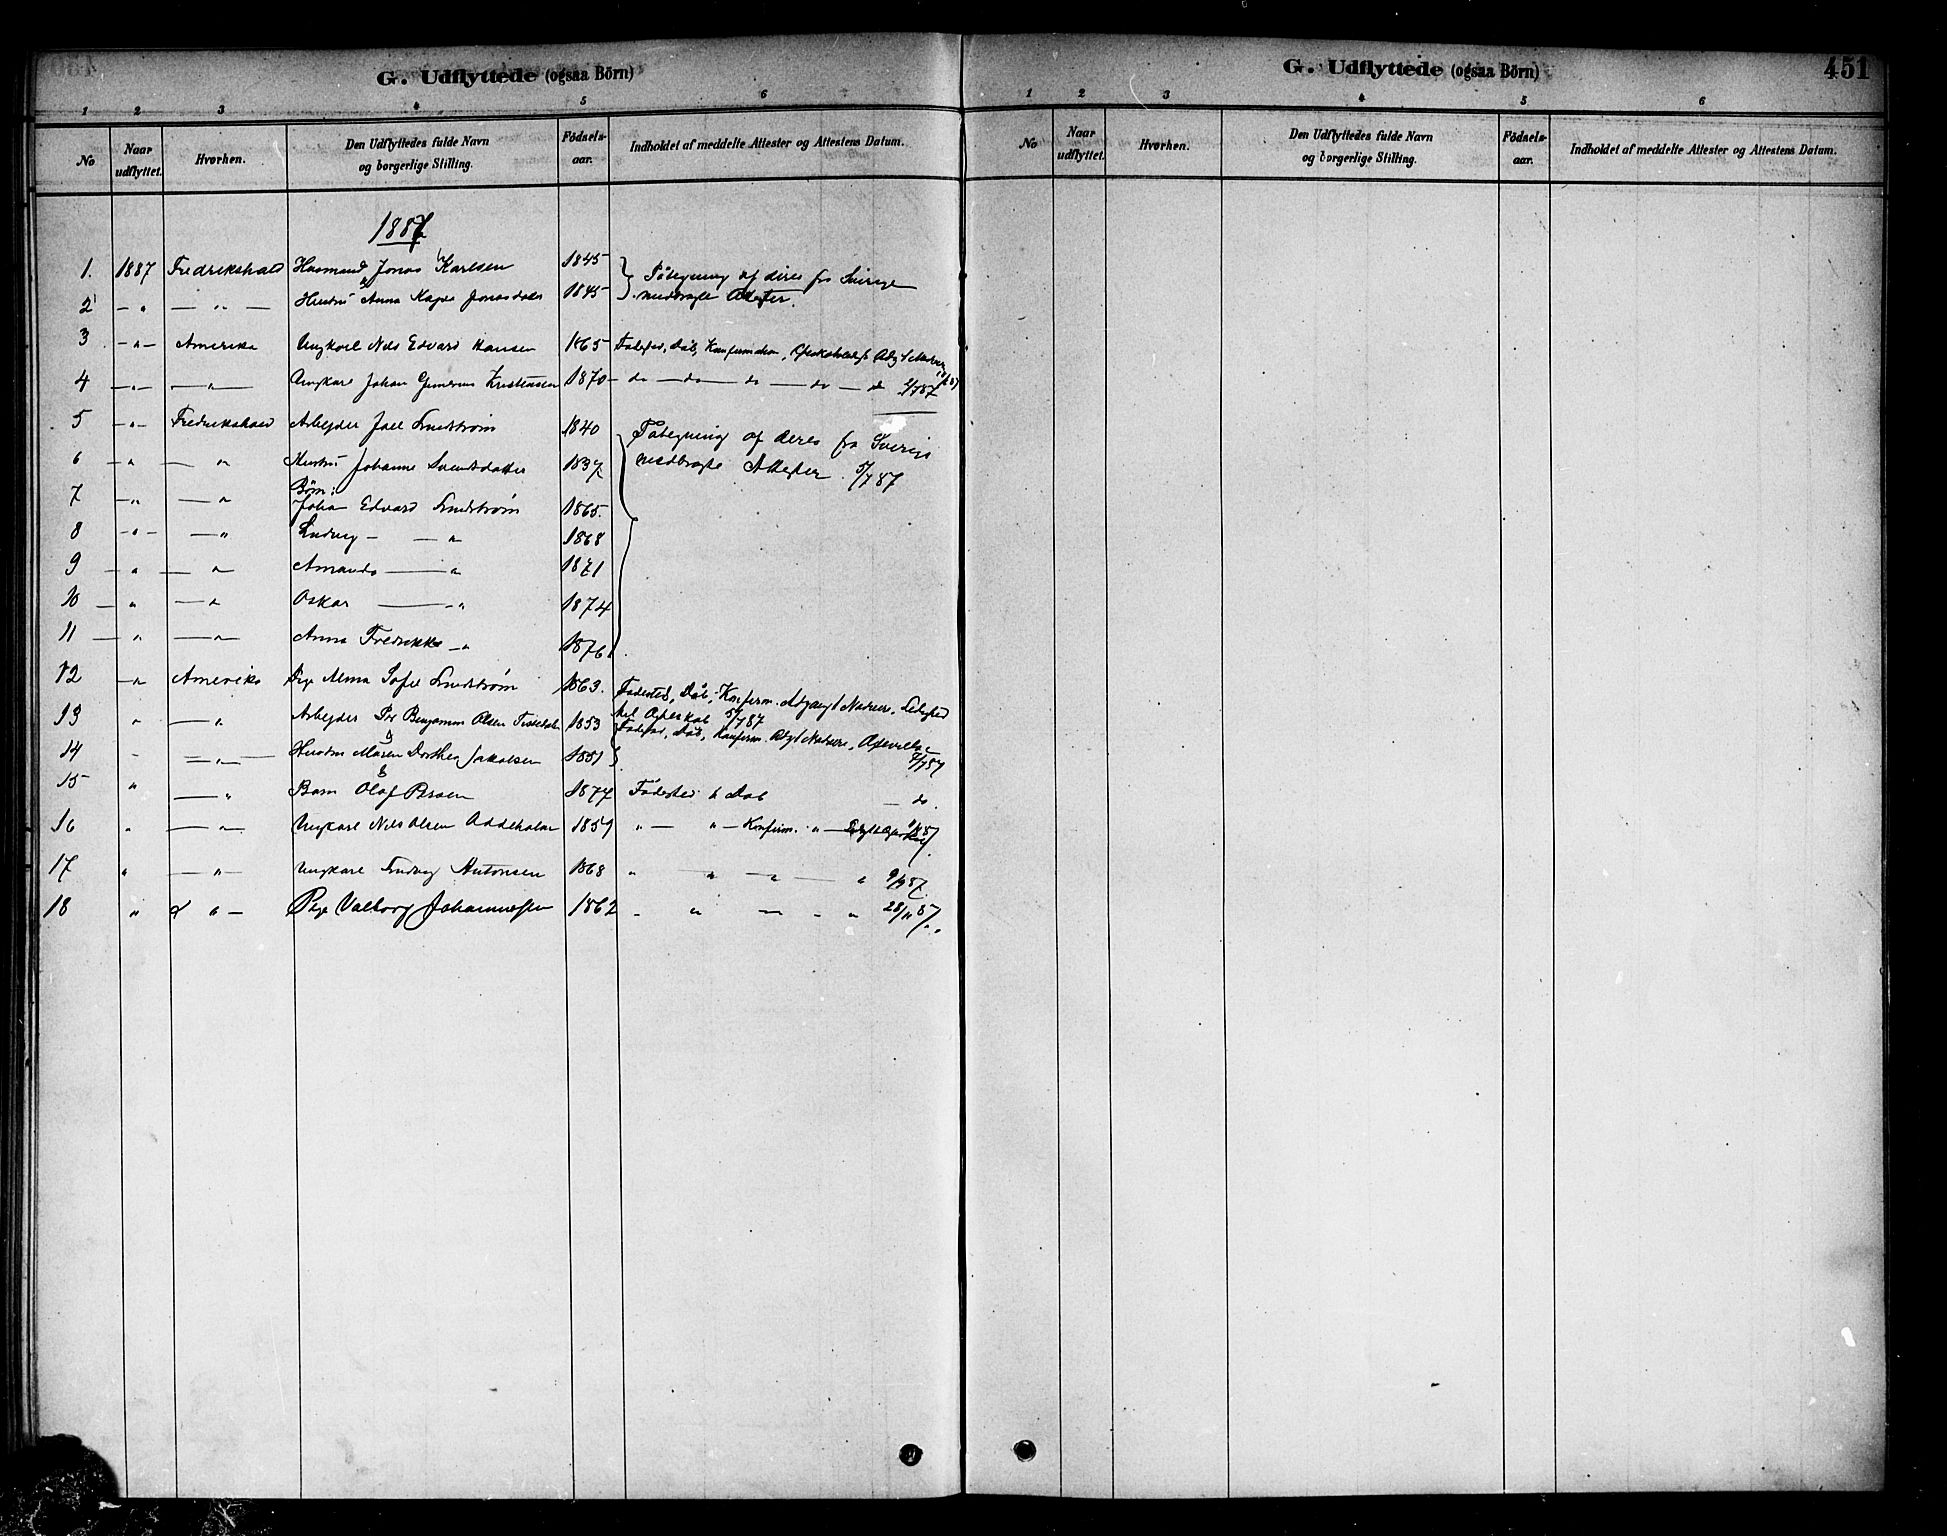 G. Udflyttede (ogsaa Börn)
1 2 3 4 5 6
No Naar udflyttet. Hvorhen. Den Udflyttedes fulde Navn og borgerlige Stilling. Födsels-aar. Indholdet af meddelte Attester og Attestens Datum.
1887
1. 1887 Fredrikshald Husmand Jonas Karlsen 1845 Påtegning af deres fra Sverige
2 - " - — " — Hustru Anna Kajsa Jonasdatter 1845 medbragte Attester.
3 - " - Amerika Ungkarl Nils Edvard Hansen 1865 Fødested, Dåb, Konfirmation,
4 - " - — " — Ungkarl Johan Kristensen 1870 - do — do — do — do — do 87
5 - " - Fredrikshald Arbejder Joel Lindstrøm 1840 Påtegning af deres fra Sverige
6 - " — " Hustru Johanne Svendsdatter 1837 medbragte Attester 5/7 87
7 - " — " Børn:
Johan Edvard Lindstrøm 1865.
8 - " - — " Ludvig - — " 1868
9 — " — " Amanda — " 1871
10 — " — " Oskar — " 1874
11 — " — " Anna Fredrikke — " 1876
12 — " Amerika Pige Alma Sofie Lindstrøm 1863. Fødested, Dåb, Konfirm. Adgang t Nadvere, Ledighed
13 " — " Arbejder Per Benjamin Olsen 1853 til Ægteskab 5/7 87
Fødested, Dåb, Konfirm. Adg t Nadvere,
14 - — " — Hustru Maren Dorthea Jakobsen 1851 87
15 " — " Barn Olaf Persen 1877 Fødested & Dåb — do.
16 " — " — Ungkarl Nils Olsen 1859 " — " — Konfirm. " — 87
17 " — " — Ungkarl Ludvig Antonsen 1868 " " " — " 87
18 " " — Pige Valborg 1862 " " — " " 28/11 87
G. Udflyttede (ogsaa Börn) 451
1 2 3 4 5 6
No Naar udflyttet. Hvorhen. Den Udflyttedes fulde Navn og borgerlige Stilling. Födsels-aar. Indholdet af meddelte Attester og Attestens Datum.